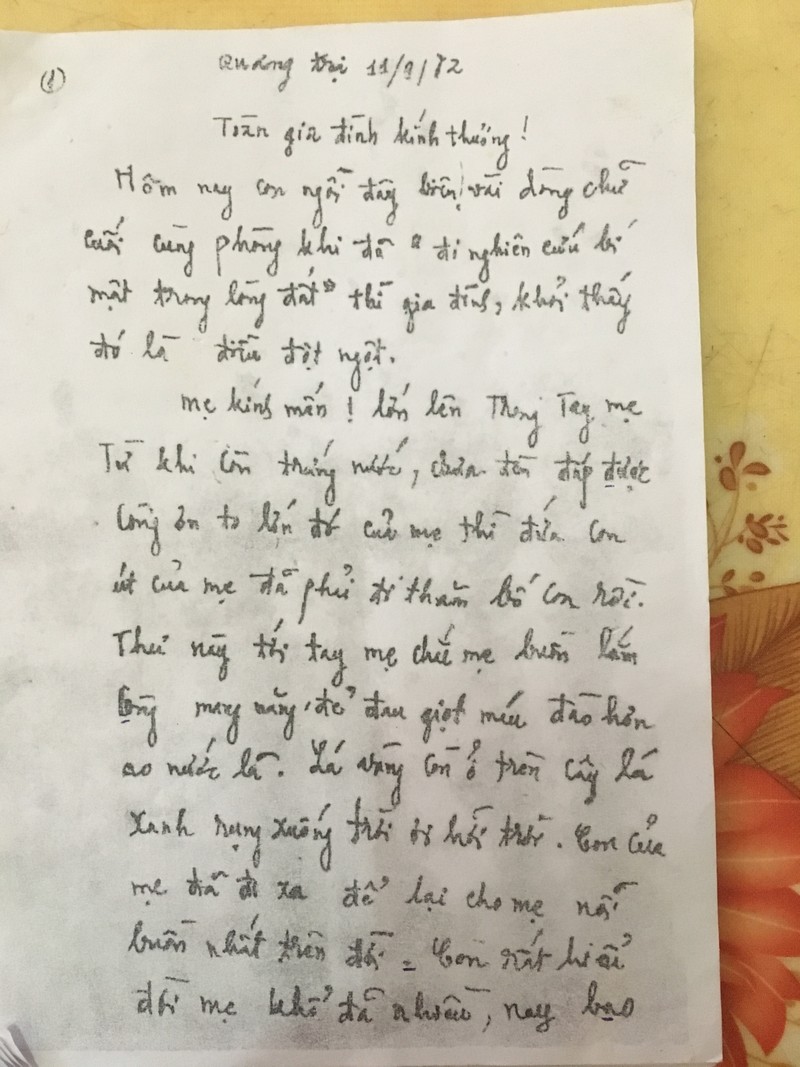 (1)
Quảng trị 11/9/72
Toàn gia đình kính thương!
Hôm nay con ngồi đây biên vài dòng chữ
cuối cùng phòng khi đã "đi nghiên cứu bí
mật trong lòng đất" thì gia đình, khỏi thấy
đó là điều đột ngột.
mẹ kính mến! lớn lên Trong Tay mẹ
Từ khi còn trứng nước, chưa đền đáp được
Công ơn to lớn đó của mẹ thì đứa con
út của mẹ đã phải đi thăm bố con rồi.
Thư này tới tay mẹ chắc mẹ buồn lắm
lòng mang nặng, đẻ đau giọt máu đào hơn
ao nước lã. Lá vàng còn ở trên cây lá
xanh rụng xuống trời ơi hỡi trời. Con của
mẹ đã đi xa để lại cho mẹ nỗi
buồn nhất trên đời. Con rất hiểu
đời mẹ khổ đã nhiều, nay bao